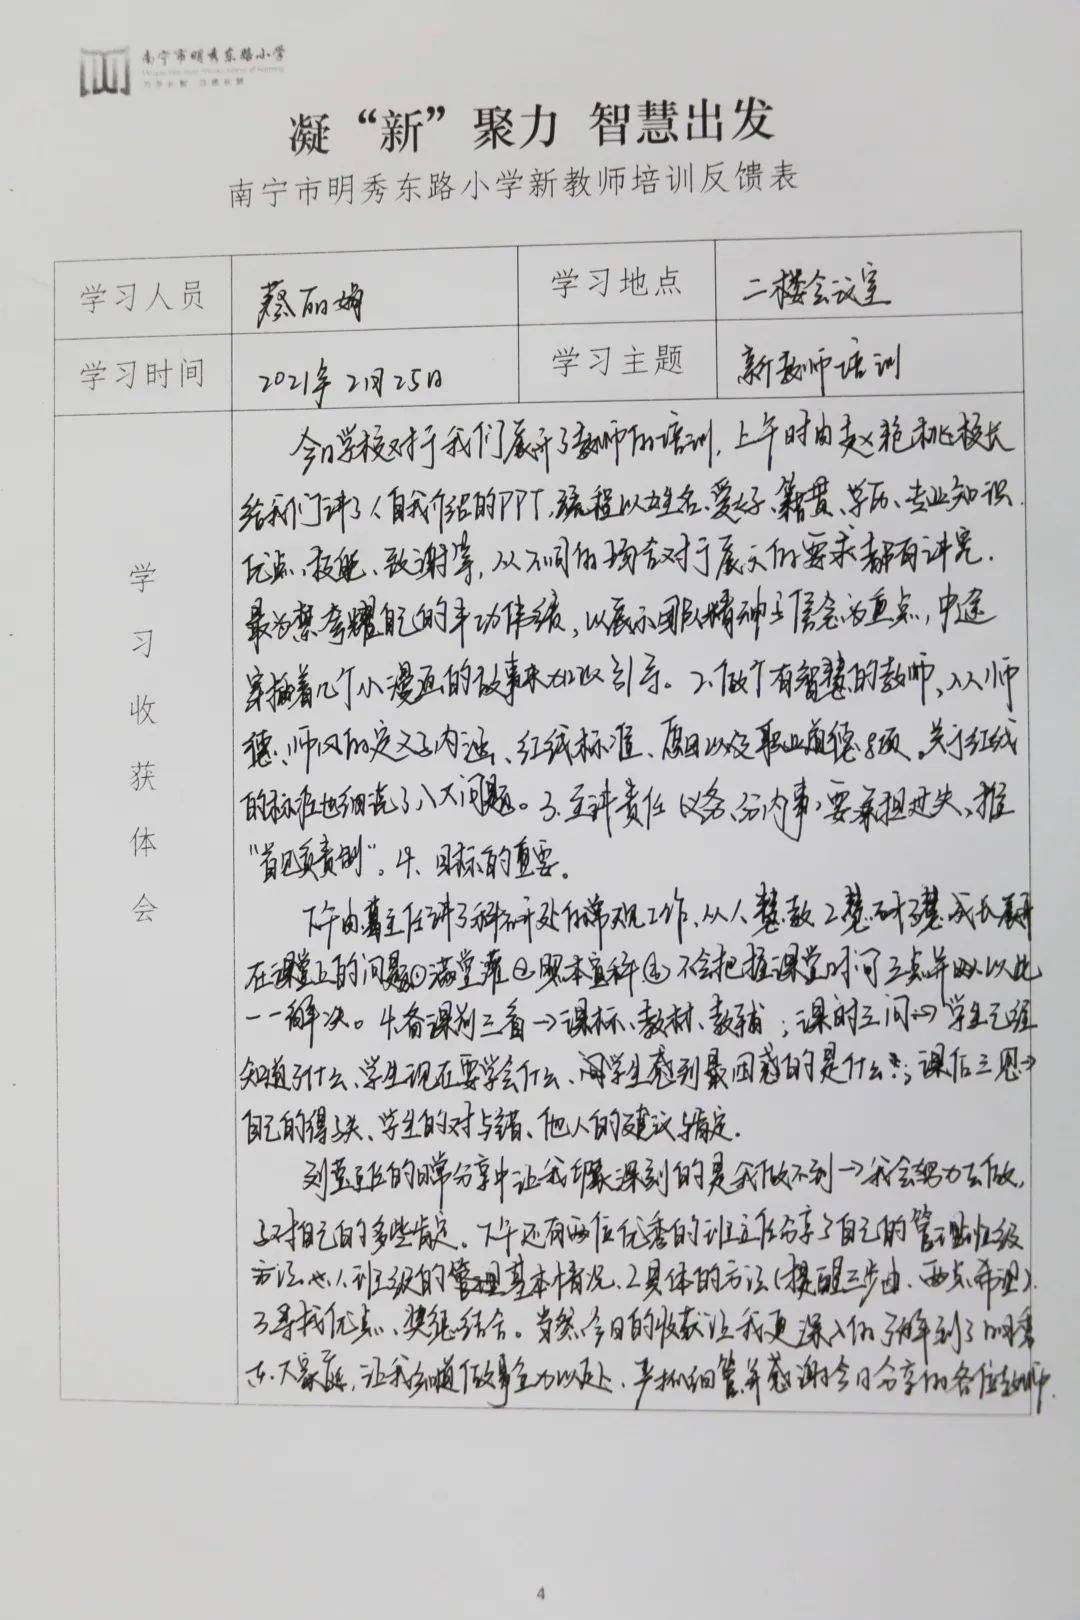 南宁市明秀东路小学
凝“新”聚力 智慧出发
南宁市明秀东路小学新教师培训反馈表
学习人员 蔡丽娟 学习地点 二楼会议室
学习时间 2021年2月25日 学习主题 新教师培训
学习收获体会
今日学校对于我们展开了教师的培训,上午时由赵艳桃校长
给我们讲了1自我介绍的PPT,流程以姓名、爱好、籍贯、学历、专业知识、
优点、技能、致谢等,从不同的场合对于展示的要求都有讲究.
最为禁夸耀自己的丰功伟绩,以展示团队精神与信念为重点,中途
穿插着几个小漫画的故事来加以引导。2.做个有智慧的教师,从师
德、师风的定义与内涵、红线标准、原因以及职业道德8项。关于红线
的标准也细说了八大问题。3.主讲责任 义务、分内事,要承担过失、推
“首见负责制”。4、目标的重要。
下午由葛主任讲了科研处的常规工作、从1慧教2慧研3慧成长展开
在课堂上的问题①满堂灌②照本宣科③不会把握课堂时间三点并以此
一一解决。4.备课前三看→课标、教材、教辅;课时三问→学生已经
知道了什么、学生现在要学会什么、问学生感到最困惑的是什么;课后三思→
自己的得与失、学生的对与错、他人的建议与肯定.
刘莹主任的日常分享中让我印象深刻的是我做不到→我会努力去做,
与对自己的多些肯定。下午还有两位优秀的班主任分享了自己的管理班级
方法 1.班级的管理基本情况、2具体的方法(提醒三步曲、两点希望)
3寻找优点、奖惩结合。当然今日的收获让我更深入的了解到了明秀
东大家庭,让我知道做事全力以赴、严抓细管并感谢今日分享的各位教师.
4